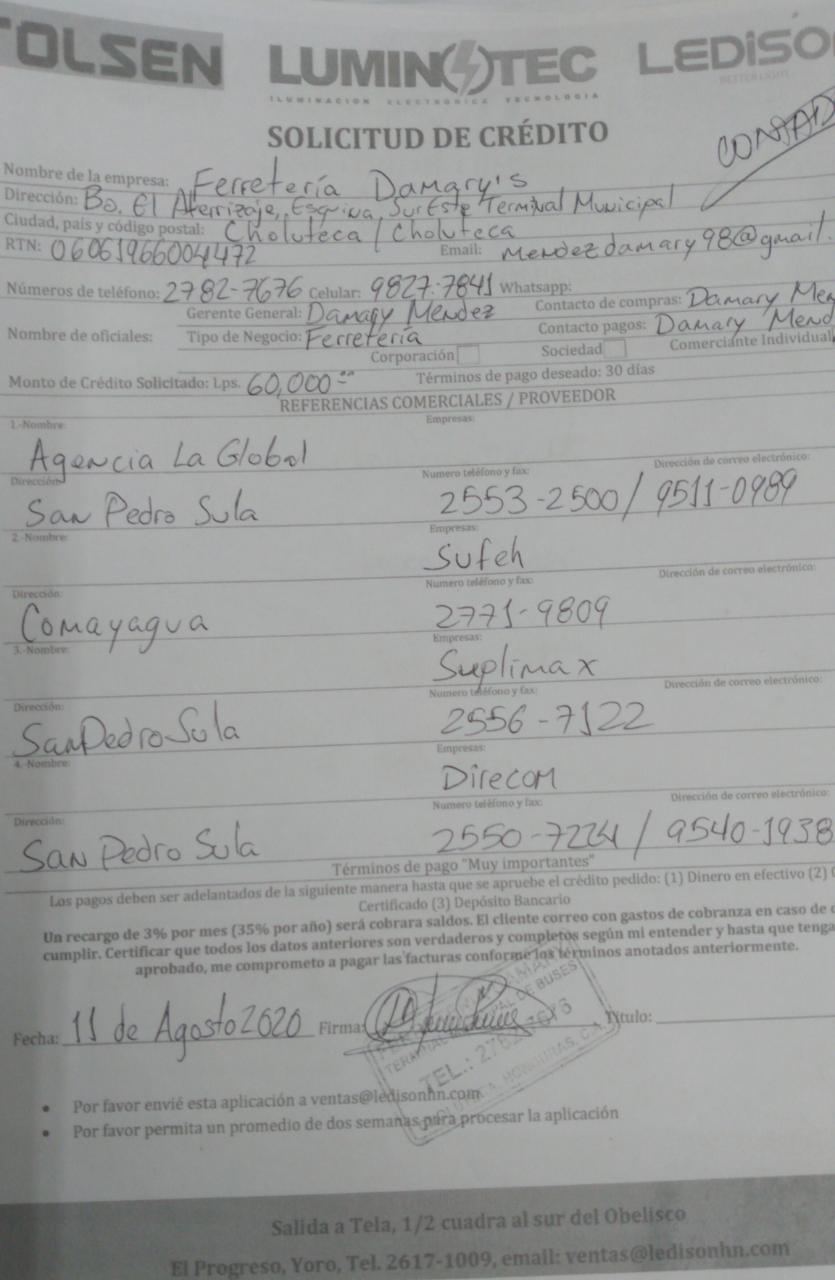 TOLSEN LUMINOTEC LEDISO
ILUMINACION ELECTRONICA TECNOLOGIA
SOLICITUD DE CRÉDITO
CONTAD
Nombre de la empresa: Ferretería Damary's
Dirección: Bo. El Aterrizaje, Esquina, SurEste Terminal Municipal
Ciudad, país y código postal: Choluteca / Choluteca
RTN: 06061966004472 Email: mendezdamary98@gmail.
Números de teléfono: 2782-7676 Celular: 9827-7841 Whatsapp:
Gerente General: Damary Mendez Contacto de compras: Damary Men
Nombre de oficiales: Tipo de Negocio: Ferretería Contacto pagos: Damary Mend
Corporación Sociedad Comerciante Individual
Monto de Crédito Solicitado: Lps. 60,000.00 Términos de pago deseado: 30 días
REFERENCIAS COMERCIALES / PROVEEDOR
1.-Nombre: Empresas:
Agencia La Global
Dirección: Numero teléfono y fax: Dirección de correo electrónico:
San Pedro Sula 2553-2500 / 9511-0989
2.-Nombre: Empresas:
Sufeh
Dirección: Numero teléfono y fax: Dirección de correo electrónico:
Comayagua 2771-9809
3.-Nombre: Empresas:
Suplimax
Dirección: Numero teléfono y fax: Dirección de correo electrónico:
San Pedro Sula 2556-7122
4.-Nombre: Empresas:
Direcom
Dirección: Numero teléfono y fax: Dirección de correo electrónico:
San Pedro Sula 2550-7224 / 9540-1938
Términos de pago "Muy importantes"
Los pagos deben ser adelantados de la siguiente manera hasta que se apruebe el crédito pedido: (1) Dinero en efectivo (2)
Certificado (3) Depósito Bancario
Un recargo de 3% por mes (35% por año) será cobrara saldos. El cliente correo con gastos de cobranza en caso de
cumplir. Certificar que todos los datos anteriores son verdaderos y completos según mi entender y hasta que tenga
aprobado, me comprometo a pagar las facturas conforme los términos anotados anteriormente.
Fecha: 11 de Agosto 2020 Firma: Título:
TEL.:
• Por favor envié esta aplicación a ventas@ledisonhn.com
• Por favor permita un promedio de dos semanas para procesar la aplicación
Salida a Tela, 1/2 cuadra al sur del Obelisco
El Progreso, Yoro, Tel. 2617-1009, email: ventas@ledisonhn.com